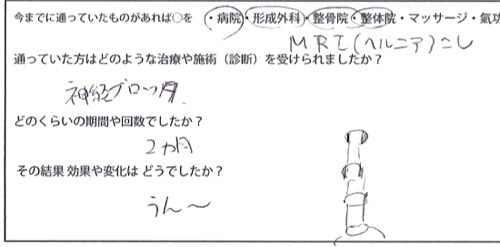 今までに通っていたものがあれば○を ・病院・形成外科・整骨院・整体院・マッサージ・氣功
MRI(ヘルニア)こし
通っていた方はどのような治療や施術（診断）を受けられましたか？
神経ブロック
どのくらいの期間や回数でしたか？
2ヵ月
その結果 効果や変化は どうでしたか？
うん〜